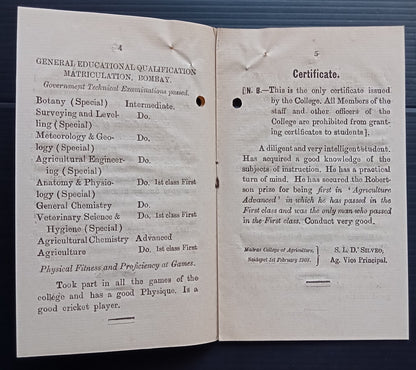 4
GENERAL EDUCATIONAL QUALIFICATION
MATRICULATION, BOMBAY.
Government Technical Examinations passed.
Botany (Special) Intermediate.
Surveying and Level- Do.
ling (Special)
Meteorology & Geo- Do.
logy (Special)
Agricultural Engineer- Do.
ing (Special)
Anatomy & Physio- Do. 1st class First
logy (Special)
General Chemistry Do.
Veterinary Science & Do. 1st class First
Hygiene (Special)
Agricultural Chemistry Advanced
Agriculture Do. 1st class First
Physical Fitness and Proficiency at Games.
Took part in all the games of the
college and has a good Physique. Is a
good cricket player.
5
Certificate.
[N. B.—This is the only certificate issued
by the College. All Members of the
staff and other officers of the
College are prohibited from grant-
ing certificates to students].
A diligent and very intelligent student.
Has acquired a good knowledge of the
subjects of instruction. He has a practical
turn of mind. He has secured the Robert-
son prize for being first in 'Agriculture
Advanced' in which he has passed in the
First class and was the only man who passed
in the First class. Conduct very good.
Madras College of Agriculture, S. L. D' SILVEO,
Saidapet 1st February 1903. Ag. Vice Principal.